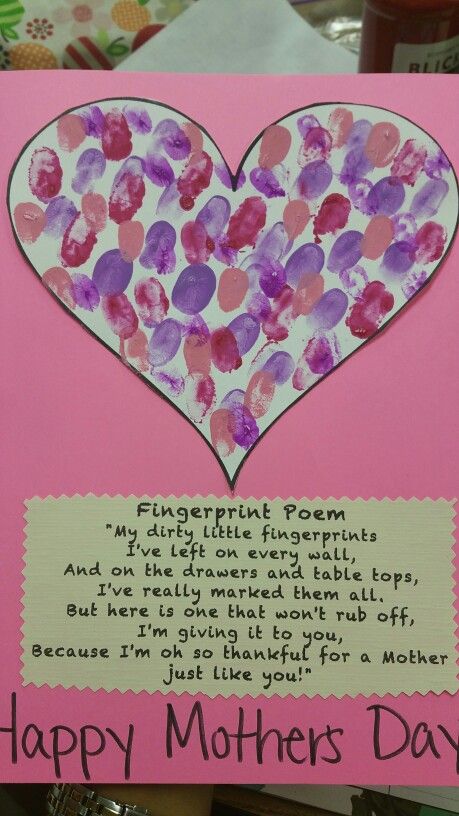 BLICK
Fingerprint Poem
"My dirty little fingerprints
I've left on every wall,
And on the drawers and table tops,
I've really marked them all.
But here is one that won't rub off,
I'm giving it to you,
Because I'm oh so thankful for a Mother
just like you!"
Happy Mother's Day